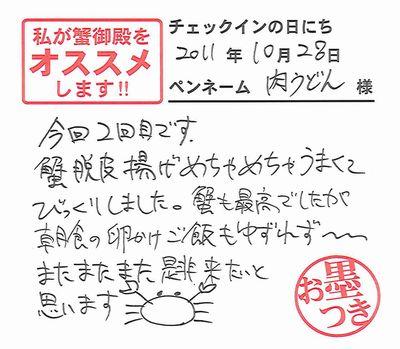 私が蟹御殿を
オススメ
します!!
チェックインの日にち
2011年10月28日
ペンネーム 肉うどん 様
今回2回目です.
蟹脱皮揚げめちゃめちゃうまくて
びっくりしました。蟹も最高でしたが
朝食の卵かけご飯もゆずれず〜〜
またまたまた是非来たいと
思います
お墨つき